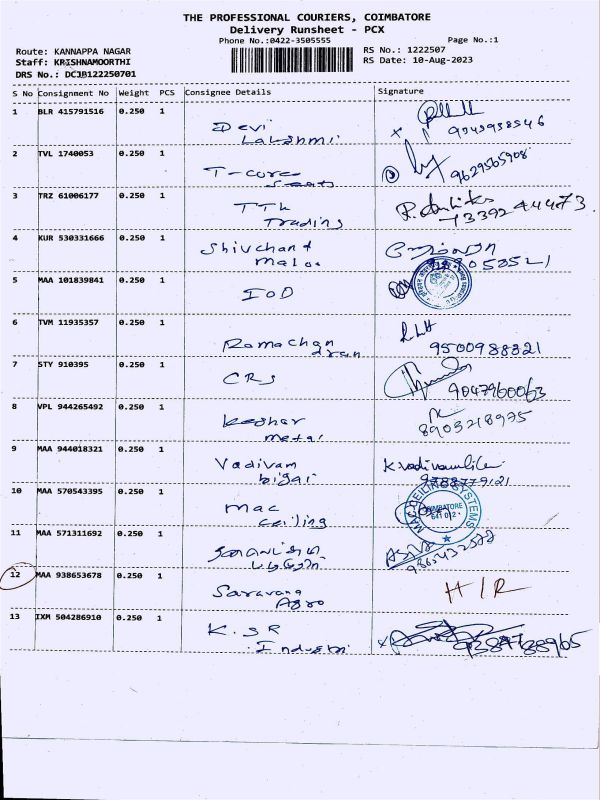 THE PROFESSIONAL COURIERS, COIMBATORE
Delivery Runsheet - PCX
Phone No.:0422-3505555
Page No.:1
Route: KANNAPPA NAGAR
RS No.: 1222507
Staff: KRISHNAMOORTHI
RS Date: 10-Aug-2023
DRS No.: DCJB122250701
S No Consignment No Weight PCS Consignee Details Signature
1 BLR 415791516 0.250 1
Devi
Lakshmi
2 TVL 1740053 0.250 1
T-core
9629565908
3 TRZ 61006177 0.250 1
TTK
Trading
4 KUR 530331666 0.250 1
Shivchand
5 MAA 101839841 0.250 1
IOD
6 TVM 11935357 0.250 1
Ramachan
dran
9500988321
7 STY 910395 0.250 1
CRS
9047960063
8 VPL 944265492 0.250 1
Keshar
metal
8903218975
9 MAA 944018321 0.250 1
Vadivam
10 MAA 570543395 0.250 1
Mac
ceiling
MAC CEILING SYSTEMS
COIMBATORE
11 MAA 571311692 0.250 1
12 MAA 938653678 0.250 1
Saravana
Agro
H/R
13 IXM 504286910 0.250 1
K.S.R
Industri